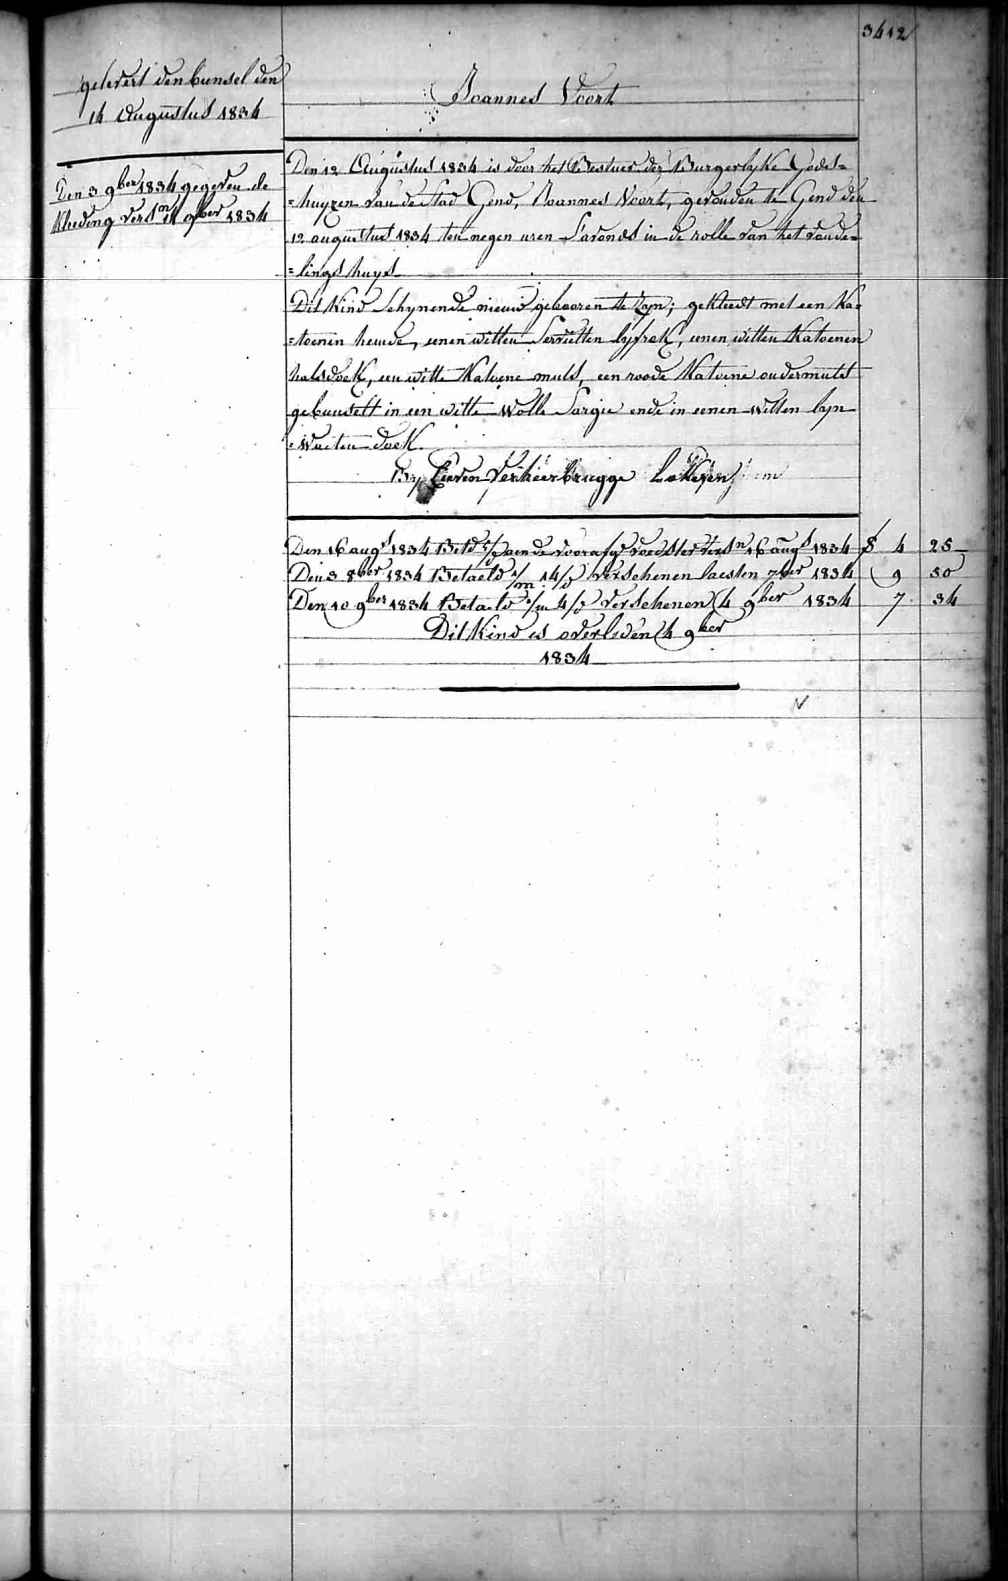 3412
gelevert den bunsel den
14 Augustus 1834
Den 3 9ber 1834 gegeven de
Kleeding versn 4 9ber 1834
Joannes Voort
Den 13 Augustus 1834 is door het Bestuer der Burgerlyke Godts=
=huyzen van de stad Gend, Joannes Voort, gevonden te Gend den
12 augustus 1834 ten negen uren S'avonds in de rolle van het vonde=
=lings huys
Dit Kind Schynende nieuw gebooren te zyn; gekleedt met een Ka=
=toenen hemde, eenen witten Servietten lyfrok, eenen witten Katoenen
halsdoek, een witte Katoene muts, een roode Katoene ondermuts
gebunselt in een witte Wolle Sargie ende in eenen witten lyn
=waeten doek.
By Lieven Verheerbrugge Lokeren
Den 16 augs 1834 Betd aen de voorafge voedster versn 16 augs 1834 8 4 25
Den 3 8ber 1834 Betaeld 1/m 14/d verschenen laesten 7ber 1834 9 50
Den 10 9ber 1834 Betaeld 1/m 4/d verschenen 4 9ber 1834 7 34
Dit Kind is overleden 4 9ber
1834